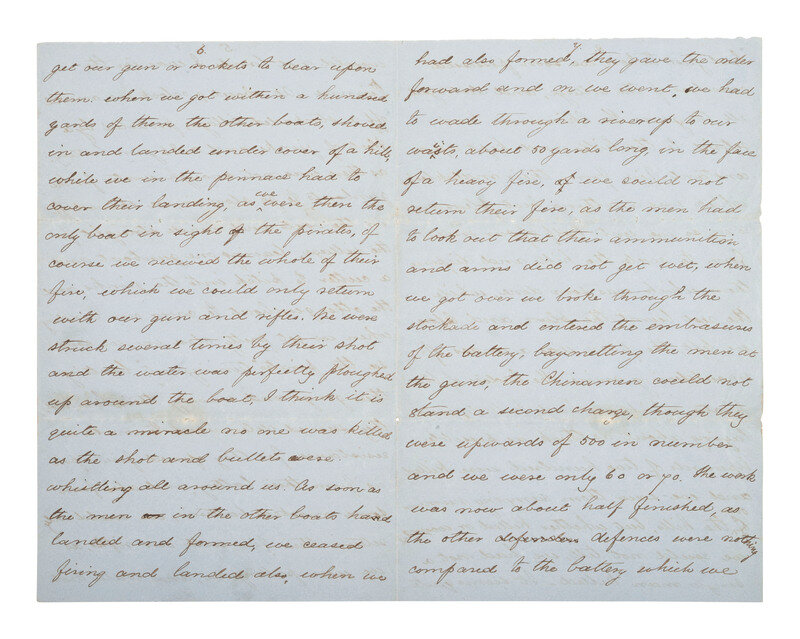 6.
get our gun or rockets to bear upon
them. when we got within a hundred
yards of them the other boats, shoved
in and landed under cover of a hill,
while we in the pinnace had to
cover their landing, as we were then the
only boat in sight of the pirates, of
course we received the whole of their
fire, which we could only return
with our gun and rifles. We were
struck several times by their shot
and the water was perfectly ploughed
up around the boat, I think it is
quite a miracle no one was killed
as the shot and bullets were
whistling all around us. As soon as
the men in the other boats had
landed and formed, we ceased
firing and landed also, when we
7.
had also formed, they gave the order
forward and on we went, we had
to wade through a river up to our
waists, about 50 yards long, in the face
of a heavy fire, & we could not
return their fire, as the men had
to look out that their ammunition
and arms did not get wet, when
we got over we broke through the
stockade and entered the embrasures
of the battery, bayonetting the men at
the guns, the Chinamen could not
stand a second charge, though they
were upwards of 500 in number
and we were only 60 or 70. The work
was now about half finished, as
the other defences were nothing
compared to the battery which we